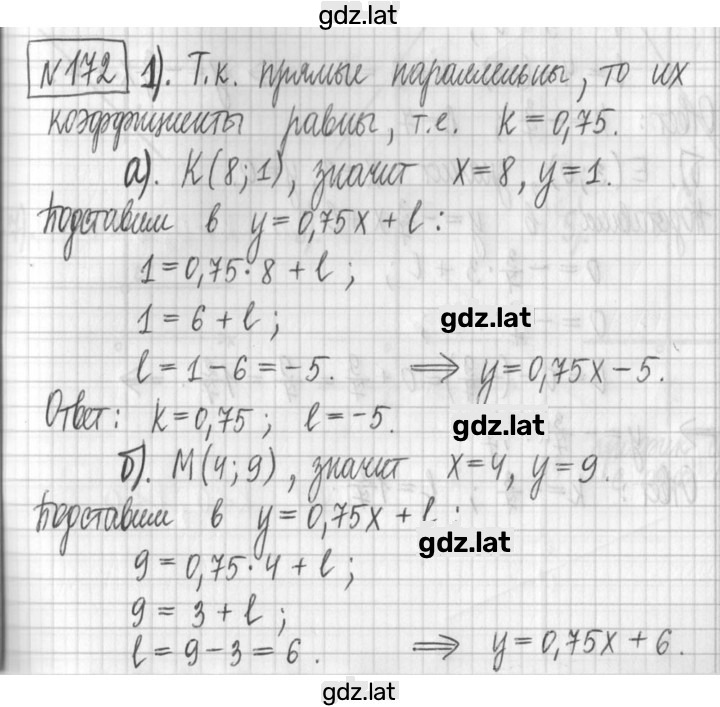 gdz.lat
№172 1). Т.к. прямые параллельны, то их
коэффициенты равны, т.е. k=0,75.
а). K(8;1), значит x=8, y=1.
Подставим в y=0,75x+l:
1=0,75·8+l;
1=6+l;
gdz.lat
l=1-6=-5. ⟹ y=0,75x-5.
Ответ: k=0,75; l=-5.
gdz.lat
б). M(4;9), значит x=4, y=9.
Подставим в y=0,75x+l:
gdz.lat
9=0,75·4+l;
9=3+l;
l=9-3=6. ⟹ y=0,75x+6.
gdz.lat